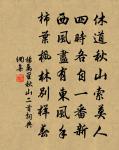 休道秋山索莫人
四時各自一番新
西風盡有東風手
柿葉楓林别樣春
楊萬里秋山二首詞典
網集